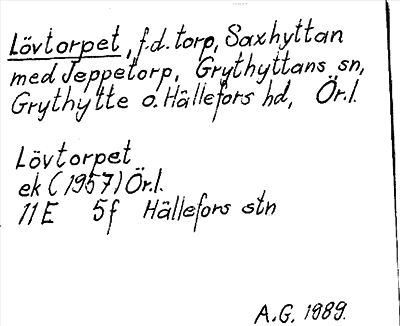 Lövtorpet, f.d. torp, Saxhyttan
med Jeppetorp, Grythyttans sn,
Grythytte o. Hällefors hd, Ör.l.
Lövtorpet
ek (1957) Ör.l.
11E 5f Hällefors stn
A.G. 1989.